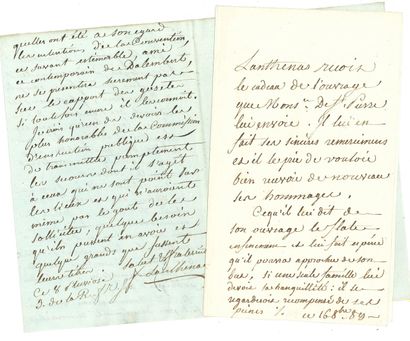 quelles ont été a son egard
les intentions de la Convention,
ce savant estimable, ami
et contemporain de Dalembert,
ne se permettra surement pas
le rapport des
si toutefois encore il le connait.
Je crois qu'un des devoirs les
plus honorables de la Commission
d'instruction publique est
de transmettre promptement
les secours dont il s'agit
à ceux qui ne sont point sur
les lieux et qui n'auroient
même pas le gout de les
solliciter, quelque besoin
qu'ils peuvent en avoir et
quelque grands que fussent
leurs titres. Salut et fraternité
Ce 8 Pluviose Lanthenas
3. de la R. f.
Lanthenas recoit
le cadeau de l'ouvrage
que Mons.r De St Pierre
lui envoie. Il lui en
fait ses sincères remercimens
et il le prie de vouloir
bien recevoir de nouveau
ses hommages.
Ce qu'il lui dit de
son ouvrage le flate
infiniment et lui fait espérer
qu'il pourra approcher de son
but, si une seule famille lui
devoit sa tranquillité: il se
regarderoit recompensé de ses
peines. ce 16 8bre 89